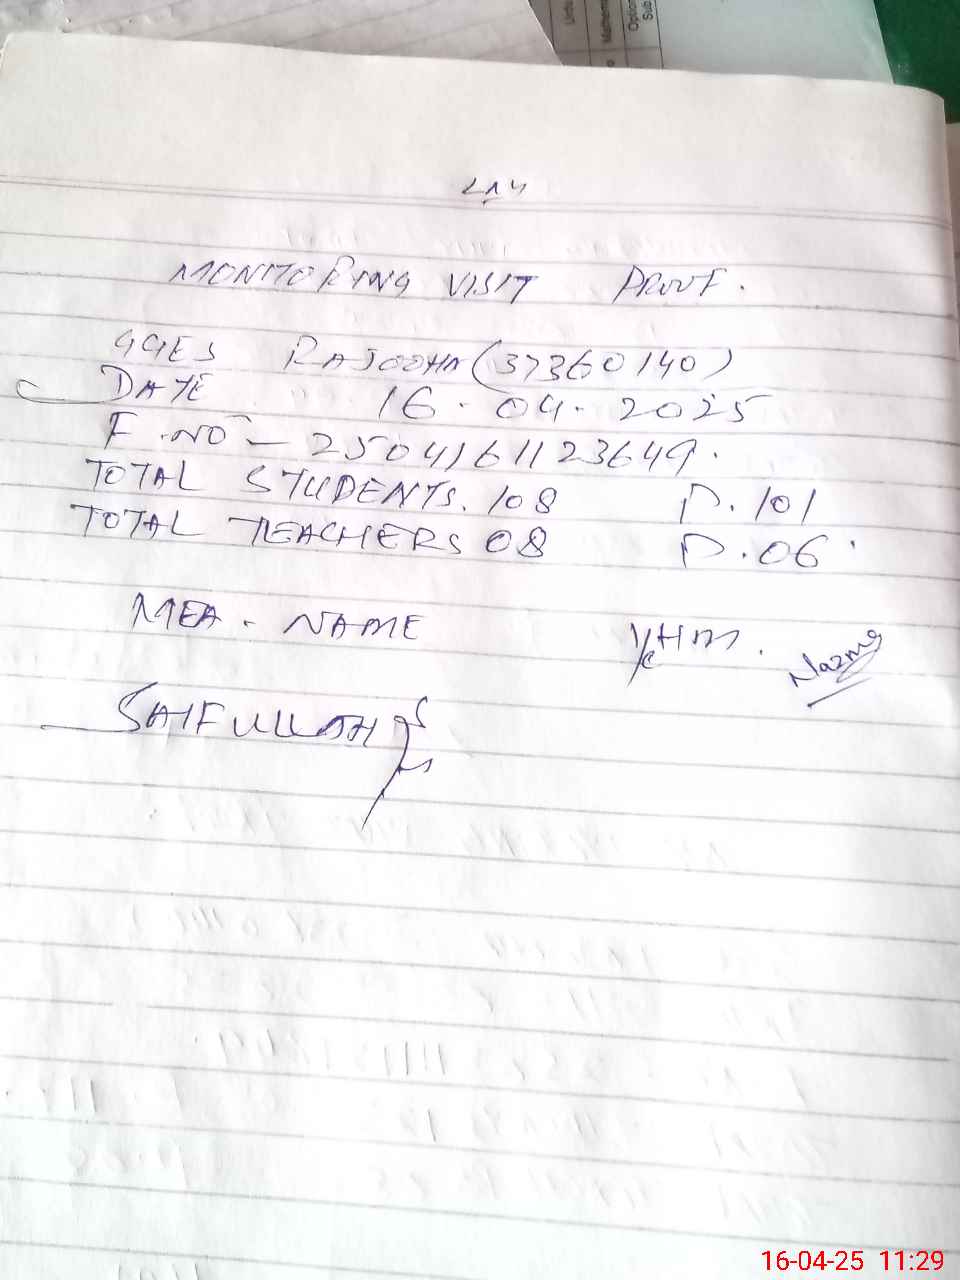 Mathema
Option
Sub
MONITORING VISIT PROOF.
GGES RAJOOHA (37360140)
DATE 16-04-2025
F.NO - 2504161123649.
TOTAL STUDENTS. 108 P.101
TOTAL TEACHERS 08 P.06
MEA. NAME I/C HM. Nazma
SAIFULLAH
16-04-25 11:29